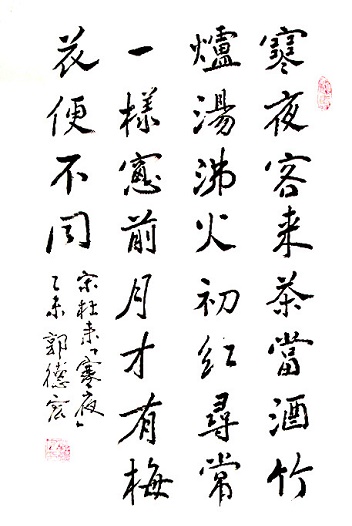 寒夜客来茶當酒竹
爐湯沸火初紅尋常
一樣窓前月才有梅
花便不同
宋杜耒「寒夜」
乙未郭德宏